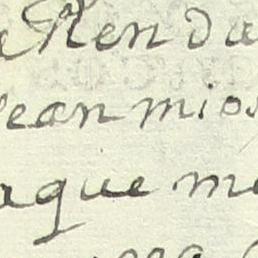 e Renda
sean mios
aque me